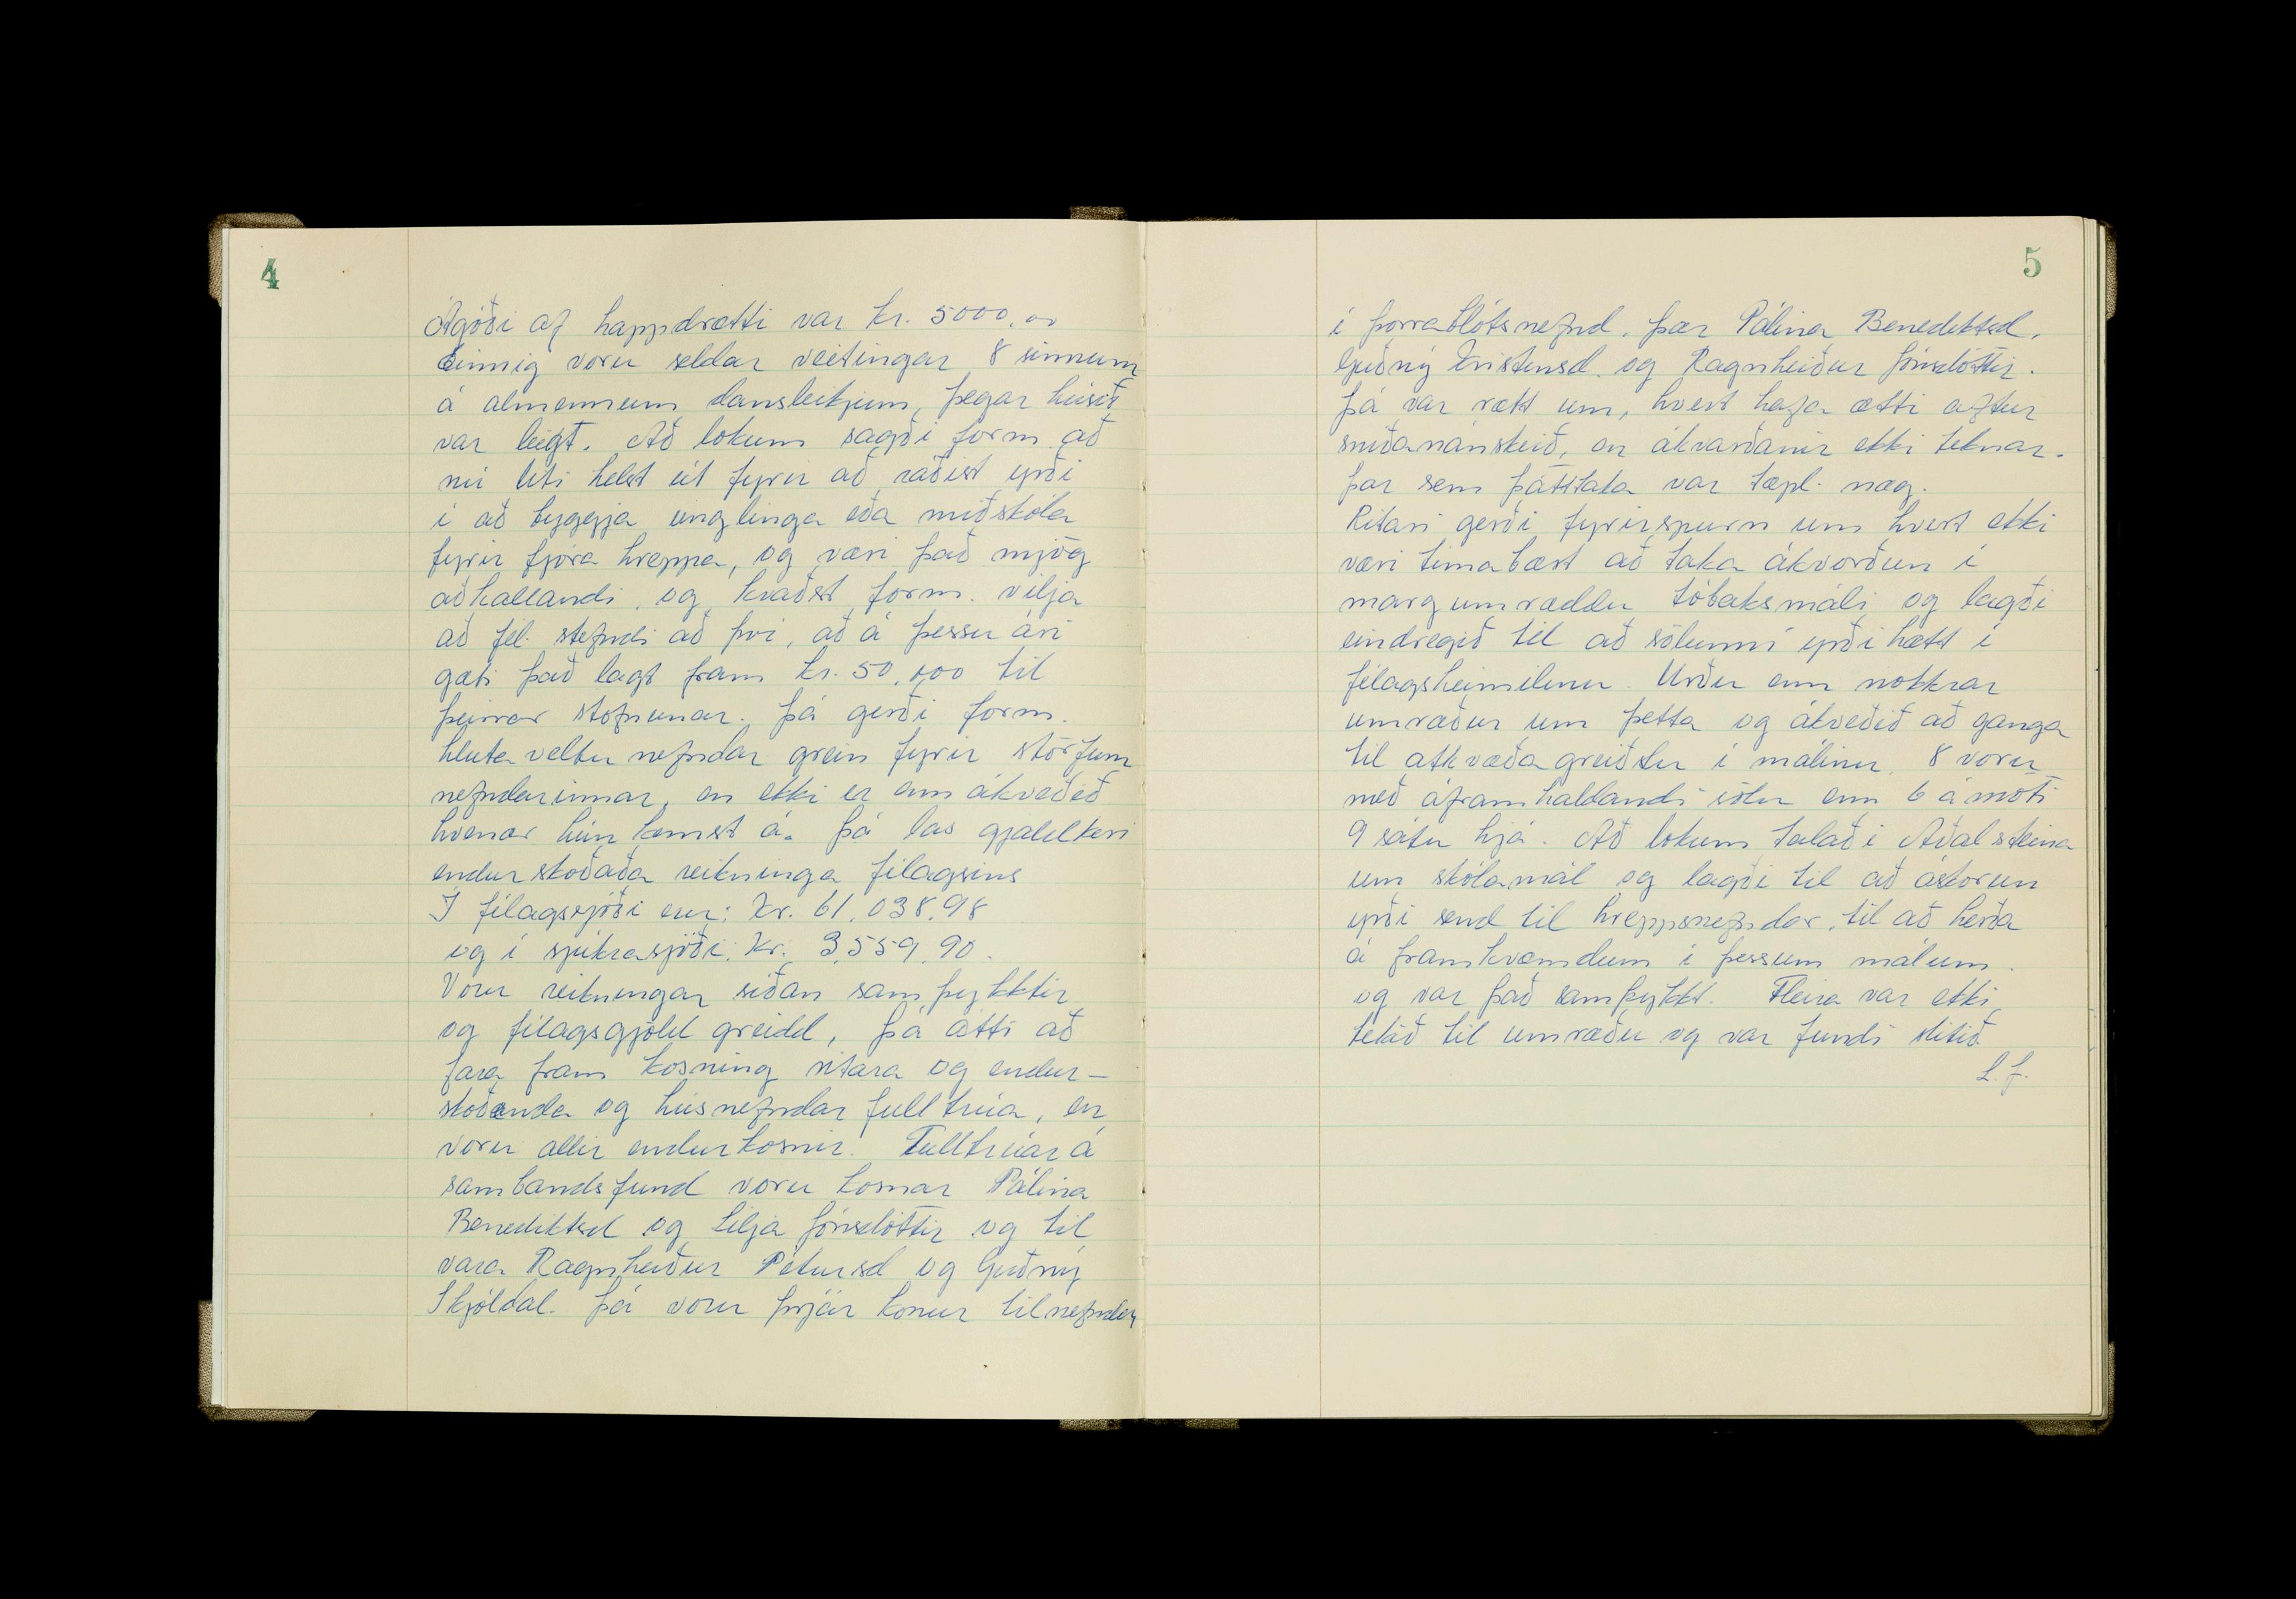 4
Ágóði af happdrætti var kr. 5000.00
Einnig voru seldar veitingar 8 sinnum
á almennum dansleikjum, þegar húsið
var leigt. Að lokum sagði form. að
nú liti helst út fyrir að ráðist yrði
í að byggja unglinga eða miðskóla
fyrir fjóra hreppa, og væri það mjög
aðkallandi, og kvaðst form. vilja
að fél. stefndi að því, að á þessu ári
gæti það lagt fram kr. 50.000 til
þeirrar stofnunar. Þá gerði form.
hlutaveltu nefndar grein fyrir störfum
nefndarinnar, en ekki er enn ákveðið
hvenær hún kemst á. Þá las gjaldkeri
endurskoðaða reikninga félagsins
Í félagssjóði eru: kr. 61.038.98
og í sjúkrasjóði: kr. 3.559.90.
Voru reikningar síðan samþykktir
og félagsgjöld greidd, þá átti að
fara fram kosning ritara og endur-
skoðenda og húsnefndar fulltrúa, en
voru allir endurkosnir. Fulltrúar á
sambandsfund voru kosnar Pálína
Benediktsd og Lilja Jónsdóttir og til
vara Ragnheiður Pétursd og Guðný
Skjóldal. Þá voru þrjár konur tilnefndar
5
í þorrablótsnefnd. Þær Pálína Benediktsd,
Guðný Kristensd. og Ragnheiður Jónsdóttir.
Þá var rætt um, hvert hafa ætti aftur
sníðanámskeið, en ákvarðanir ekki teknar.
þar sem þátttaka var tæpl. næg.
Ritari gerði fyrirspurn um hvert ekki
væri tímabært að taka ákvörðun í
margumræddu tóbaksmáli og lagði
eindregið til að sölunni yrði hætt í
félagsheimilinu. Urðu enn nokkrar
umræður um þetta og ákveðið að ganga
til atkvæðagreiðslu í málinu. 8 voru
með áframhaldandi sölu enn 6 á móti
9 sátu hjá. Að lokum talaði Aðalsteina
um skólamál og lagði til að áskorun
yrði send til hreppsnefndar, til að herða
á framkvæmdum í þessum málum.
og var það samþykkt. Fleira var ekki
tekið til umræðu og var fundi slitið
L.J.